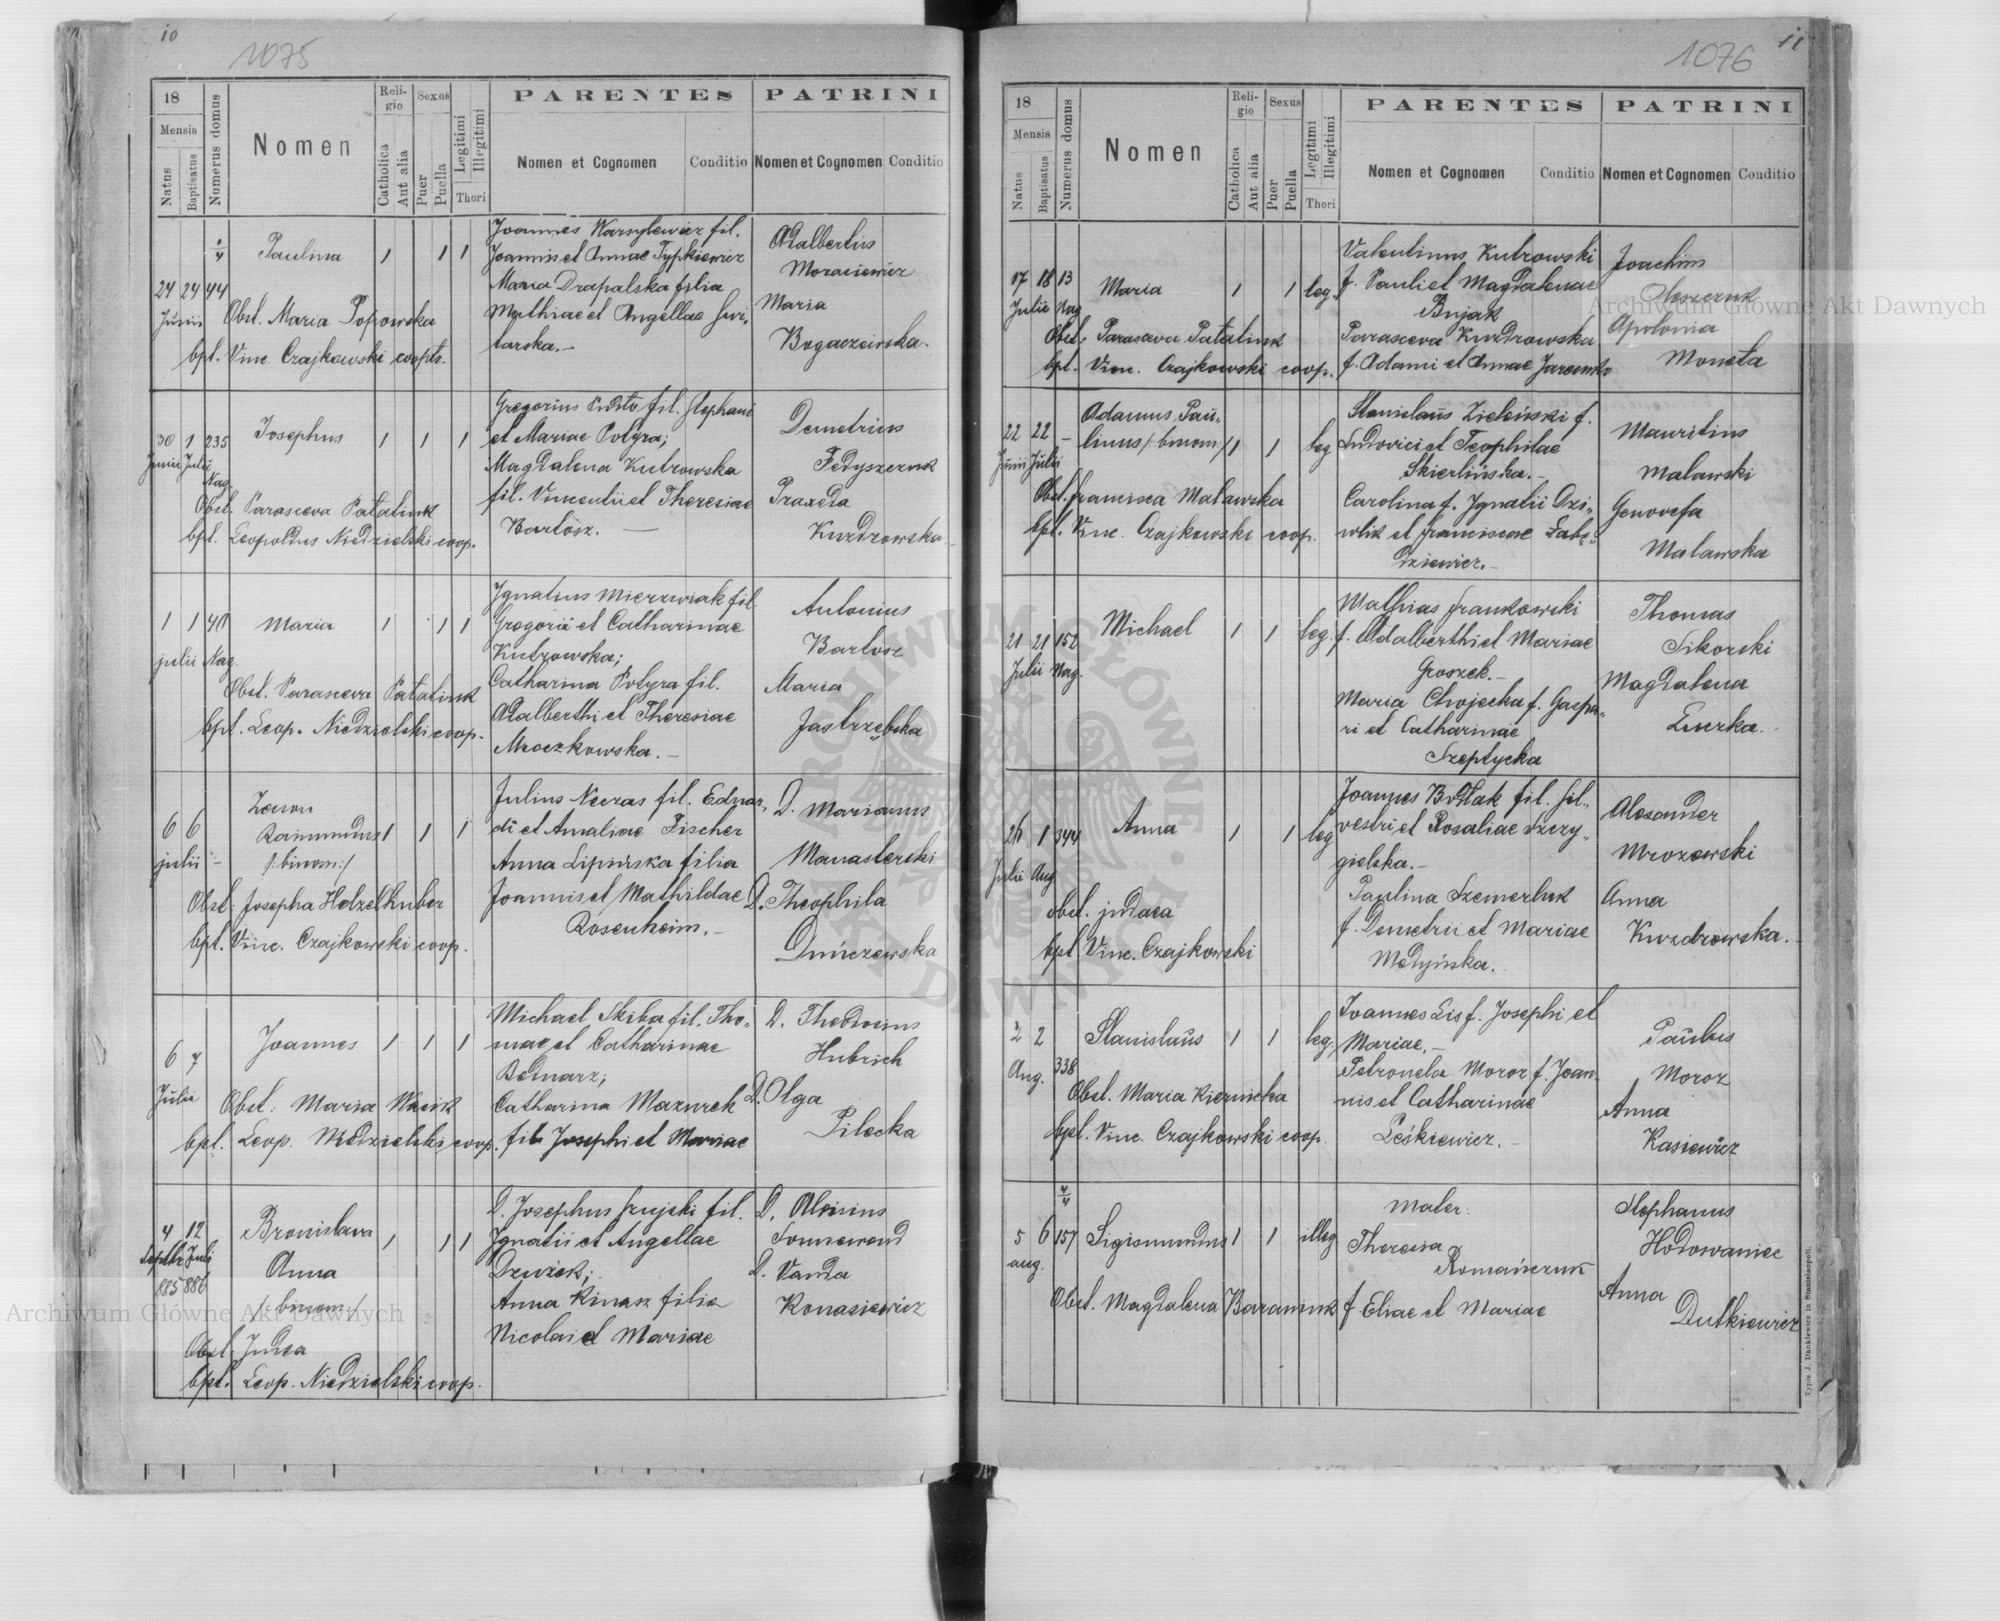 10
1075
18
Mensis
Natus
Baptisatus
Numerus domus
Nomen
Religio
Catholica
Aut alia
Sexus
Puer
Puella
Legitimi
Illegitimi
Thori
PARENTES
Nomen et Cognomen
Conditio
PATRINI
Nomen et Cognomen
Conditio
24 24 44
Junii
Paulina
1 1 1
Obst. Maria Popowska
bpt. Vinc. Czajkowski coopts.
Joannes Warsylewicz fil.
Joannis et Annae Typkiewicz
Maria Drapalska filia
Mathiae et Angellae
tarska.–
Adalbertus
Moraciewicz
Maria
Bogaczewska.
30 1 235
Junii Julii
Nag.
Josephus
1 1 1
Obst. Parasceva Patalink
bpt. Leopoldus Niedzielski coop.
Gregorius Pudło fil. Stephani
et Mariae Potyra;
Magdalena Kutrowska
fil. Vincentii et Theresiae
Bartosz. –
Demetrius
Fedyszczuk
Praxeda
Kurdrowska.
1 1 40
julii Nag.
Maria
1 1 1
Obst. Parasceva Patalink
bpt. Leop. Niedzielski coop.
Ignatius Mierzwiak fil.
Gregorii et Catharinae
Kutrowska;
Catharina Potyra fil.
Adalberthi et Theresiae
Mroczkowska. –
Antonius
Bartosz
Maria
Jastrzębska
6 6
julii –
Zenon
Raimundus
/:binom:/
1 1 1
Obst: Josepha Holzelhuber
bpt. Vinc. Czajkowski coop.
Julius Neczas fil. Eduar„
di et Amaliae Fischer
Anna Lipińska filia
Joannis et Mathildae
Rosenheim. –
D. Marianus
Manasterski
D. Theophila
Dunczewska
6 7
Julii
Joannes
1 1 1
Obst: Maria Wasik
bpt. Leop. Niedzielski coop.
Michael Skiba fil. Tho„
mae et Catharinae
Bednarz;
Catharina Mazurek
fil. Josephi et Mariae
D. Theodorus
Hubrich
D. Olga
Pilecka
4 12
Septbr Julii
885 886
Bronislava
Anna
/:binom:/
1 1 1
Obst. Judea
bpt. Leop. Niedzielski coop.
D. Josephus Szujski fil.
Ignatii et Angellae
Dzwizek;
Anna Kinasz filia
Nicolai et Mariae
D. Aloisius
Sonnewend
D. Vanda
Konasiewicz
11
1076
18
Mensis
Natus
Baptisatus
Numerus domus
Nomen
Religio
Catholica
Aut alia
Sexus
Puer
Puella
Legitimi
Illegitimi
Thori
PARENTES
Nomen et Cognomen
Conditio
PATRINI
Nomen et Cognomen
Conditio
17 18 13
Julii Nag
Maria
1 1 leg.
Obst: Parasceva Patalink
bpt. Vinc. Czajkowski coop.
Valentinus Kutrowski
f. Pauli et Magdalenae
Bujak
Parasceva Kurdrowska
f. Adami et Annae Jaremko
Joachim
Oleszczuk
Apolonia
Moneta
22 22 –
Junii Julii
Adamus Pau„
linus /:binom:/
1 1 leg
Obst. Francisca Malawska
bpt. Vinc. Czajkowski coop.
Stanislaus Zieleński f.
Ludovici et Teophilae
Skierlińska. –
Carolina f. Ignatii Dzi„
wlik et Franciscae Łabę„
dziewicz. –
Mauritius
Malawski
Genovefa
Malawska
21 21 152
Julii Nag.
Michael
1 1 leg
Mathias Frankowski
f. Adalberthi et Mariae
Groszek. –
Maria Chojecka f. Gaspa„
ri et Catharinae
Szeptycka
Thomas
Sikorski
Magdalena
Luczka.
26 1 344
Julii Aug
Anna
1 1 leg
obst. judaea
bpt. Vinc. Czajkowski
Joannes Bodlak fil. Sil„
vestri et Rosaliae Szczy„
gielska. –
Paulina Szemerluk
f. Demetrii et Mariae
Medyńska.
Alexander
Mrozowski
Anna
Kurdrowska.
2 2
Aug. 338
Stanislaus
1 1 leg.
Obst. Maria Kiernicka
bpt. Vinc. Czajkowski coop.
Ioannes Lis f. Josephi et
Mariae. –
Petronela Moroz f. Joan„
nis et Catharinae
Leśkiewicz. –
Paulus
Moroz
Anna
Kasiewicz
5 6 157
aug.
Sigismundus
1 1 illeg
Obst. Magdalena Baraniuk
Mater:
Theresia
Romańczuk
f. Eliae et Mariae
Stephanus
Hodowaniec
Anna
Dutkiewicz
Typis J. Dankiewicz in Stanislaopoli.
Archiwum Główne Akt Dawnych
Archiwum Główne Akt Dawnych
ARCHIWUM GŁÓWNE AKT DAWNYCH